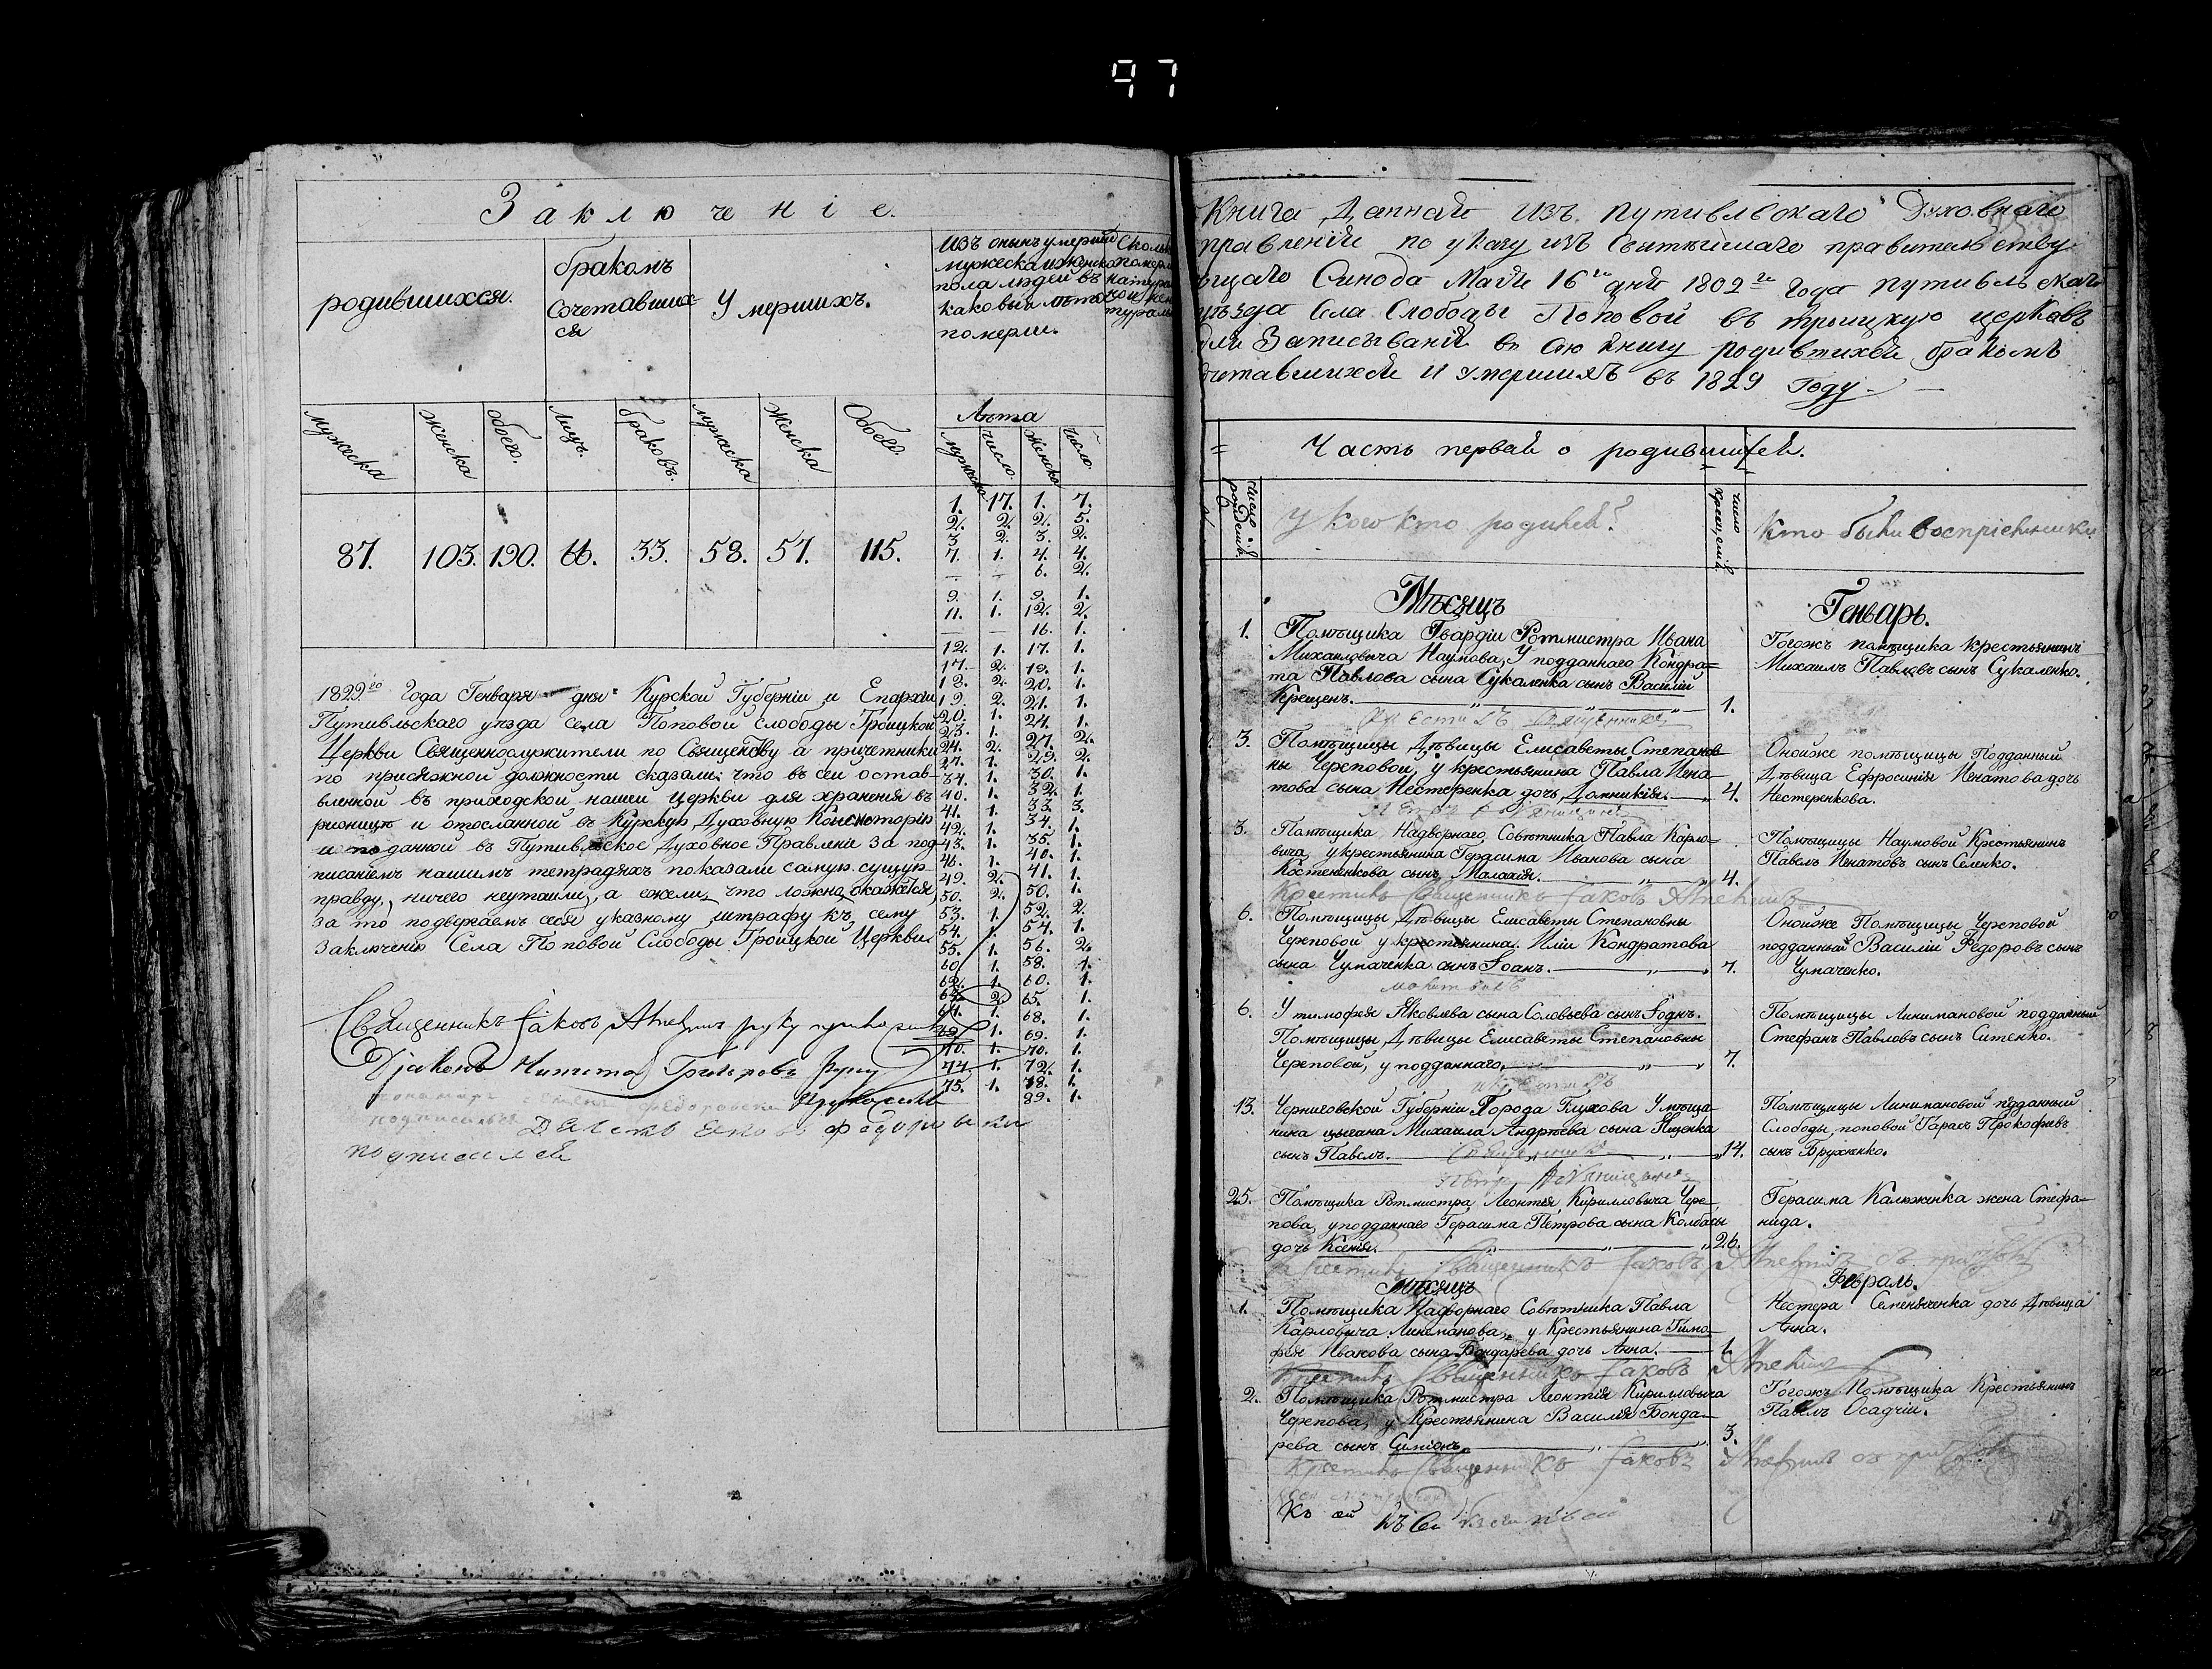 97
Заключеніе.
родившихся.
бракомъ
Сочетавших-
ся
Умершихъ.
Изъ оныхъ умерши
мужеска и женска
пола людей въ
каковыя лѣта
померли.
Мужеска
Женска
Обоего.
Лицъ.
Браковъ.
Мужеска
Женска
Обоего.
Лѣта
мужеска
число.
женска
число.
87. 103. 190. 66. 33. 58. 57. 115.
1. 17. 1. 7.
2. 2. 2. 5.
3. 2. 3. 2.
7. 1. 4. 4.
— — 6. 2.
9. 1. 9. 1.
11. 1. 12. 2.
— — 16. 1.
12. 1. 17. 1.
17. 2. 19. 1.
18. 2. 20. 1.
19. 2. 21. 1.
20. 1. 24. 1.
23. 1. 27. 2.
24. 2. 29. 2.
27. 1. 30. 1.
34. 1. 32. 1.
40. 1. 33. 3.
41. 1. 34. 1.
42. 1. 35. 1.
43. 1. 40. 1.
46. 1. 41. 1.
49. 2. 50. 1.
50. 2. 52. 2.
53. 1. 54. 1.
54. 1. 56. 2.
55. 1. 58. 1.
60. 1. 60. 1.
62. 1. 65. 1.
2. 68. 1.
1. 69. 1.
70. 1. 70. 1.
1. 72. 1.
75. 1. 78. 1.
89. 1.
1829го Года Генваря дня Курской Губерніи и Епархіи
Путивльскаго уѣзда села Поповой слободы Троицкой
Церкви Священнослужители по Священству а причетники
по присяжной должности сказали: что въ сей остав-
вленной въ приходской нашей церкви для храненія въ
ризницѣ и отосланной въ Курскую Духовную Консисторію
и поданной въ Путивльское Духовное Правленіе за под-
писаніемъ нашимъ тетрадяхъ показали самую сущую
правду, ничего неутаили, а ежели что ложно окажется,
За то подвергаемъ себя указному штрафу къ сему
Заключенію Села Поповой Слободы Троицкой Церкви.
Священникъ Іаковъ руку приложилъ
Діаконъ Никита Григоровъ руку
приложилъ
подписался
Книга Данная изъ Путивльскаго Духовнаго
правленія по указу изъ Святѣйшаго правительству
ющаго Синода Маія 16го дня 1802го Года Путивльскаго
уѣзда Села Слободы Поповой въ троицкую церковь
для Записыванія въ сію книгу родившихся бракомъ
сочетавшихся и умершихъ въ 1829 Году
Часть первая о родившихся.
число рожденія.
У кого кто родился?
число крещенія.
Кто были воспріемники
Мѣсяцъ Генварь.
1. Помѣщика Гвардіи Ротмистра Ивана
Михаиловича Наумова, У подданнаго Кондра=
та Павлова сына Сукаленка сынъ Василій
Крещенъ. 1.
Тогожъ помѣщика крестьянинъ
Михаилъ Павловъ сынъ Сукаленко.
3. Помѣщицы Дѣвицы Елисаветы Степанов-
ны Череповой, у крестьянина Павла Игна-
това сына Нестеренка дочь Домникія. 4.
Онойже помѣщицы Подданный
Дѣвица Ефросинія Игнатова дочь
Нестеренкова.
3. Помѣщика Надворнаго Совѣтника Павла Карло-
вича, у крестьянина Герасима Иванова сына
Костененкова сынъ Малахія. 4.
Помѣщицы Наумовой Крестьянинъ
Павелъ Игнатовъ сынъ Семенко.
Крестилъ Священникъ Іаковъ
6. Помѣщицы Дѣвицы Елисаветы Степановны
Череповой у крестьянина Иліи Кондратова
сына Чумаченка сынъ Іоанъ. 7.
Онойже Помѣщицы Череповой
подданный Василій Федоровъ сынъ
Чумаченко.
6. У тимофея Яковлева сына Соловьева сынъ Іоанъ.
Помѣщицы Дѣвицы Елисаветы Степановны
Череповой, у подданнаго. 7.
Помѣщицы Линимановой подданный
Стефанъ Павловъ сынъ Ситенко.
13. Черниговской Губерніи Города Глухова У мѣща-
нина цыгана Михаила Андрѣева сына Яценка
сынъ Павелъ. 14.
Помѣщицы Линимановой подданный
Слободы поповой Тарасъ Прокофіевъ
сынъ Брухненко.
25. Помѣщика Ротмистра Леонтія Кирилловича Чере-
пова, у подданнаго Герасима Петрова сына Колбасы
дочь Ксенія. 26.
Герасима Калюженка жена Стефа-
нида.
Крестилъ Священникъ Іаковъ
Мѣсяцъ Февраль.
1. Помѣщика Надворнаго Совѣтника Павла
Карловича Линеманова, у Крестьянина Тимо-
фея Иванова сына Бондарева дочь Анна. 1.
Нестера Семеняченка дочь Дѣвица
Анна.
Крестилъ Священникъ Іаковъ
2. Помѣщика Ротмистра Леонтія Кирилловича
Черепова, у Крестьянина Василія Бонда-
рева сынъ Симіонъ. 3.
Тогожъ Помѣщика Крестьянинъ
Павелъ Осадчій.
Крестилъ Священникъ Іаковъ